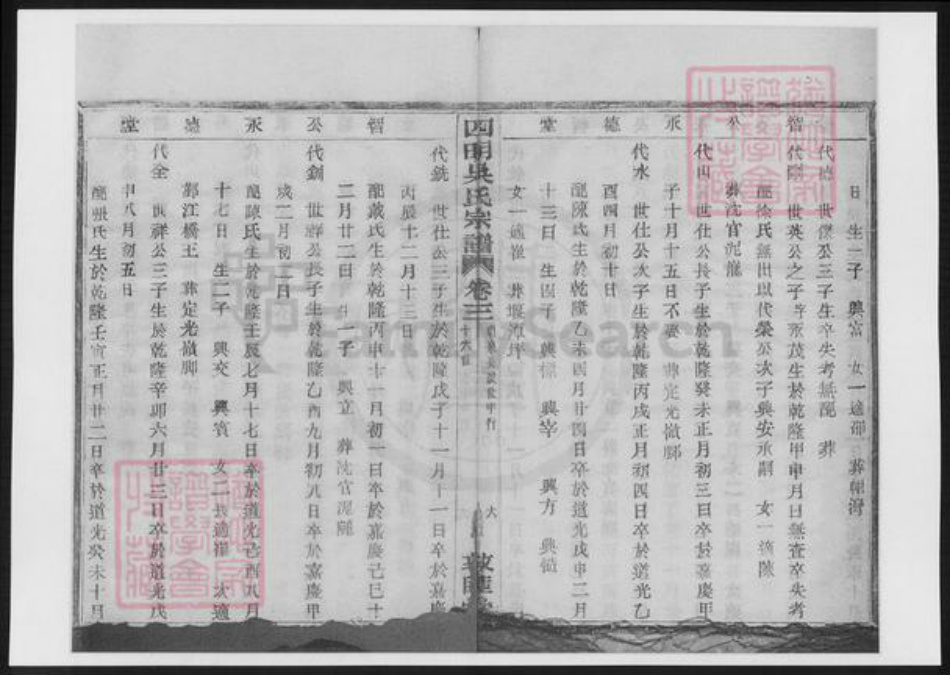 日 生二子 興富 女一適邵 葬郟灣
代德 世傑公三子生卒失考無配 葬
代剛 世英公之子 茂生於乾隆甲申月日無查卒失考
配徐氏無出以代榮公次子興安承嗣 女一適陳
葬沈官泥龍
代山 世仕公長子生於乾隆癸未正月初三日卒於嘉慶甲
子十月十五日不娶 葬定光嶺脚
代水 世仕公次子生於乾隆丙戌正月初四日卒於道光乙
酉四月初十日
配陳氏生於乾隆乙未四月廿四日卒於道光戊申二月
十三日 生四子 興標 興宰 興方 興
女一適崔 葬堰 坪
智 公 永 德 堂
四明吳氏宗譜 卷三
代銑 世仕公三子生於乾隆戊子十一月十一日卒於嘉慶
丙辰十二月十三日
配戴氏生於乾隆丙申十一月初一日卒於嘉慶己巳十
二月廿二日 生一子 興立 葬沈官泥
代釗 世祥公長子生於乾隆乙酉九月初八日卒於嘉慶甲
戌二月初二日
配陳氏生於乾隆壬辰七月十七日卒於道光己酉八月
十七日 生二子 興交 興賓 女二長適崔 次適
鄞江橋王 葬定光嶺脚
代全 世祥公三子生於乾隆辛卯六月廿三日卒於道光戊
申八月初五日
配張氏生於乾隆壬寅正月廿二日卒於道光癸未十月
智 公 永 德 堂
FamilySearch